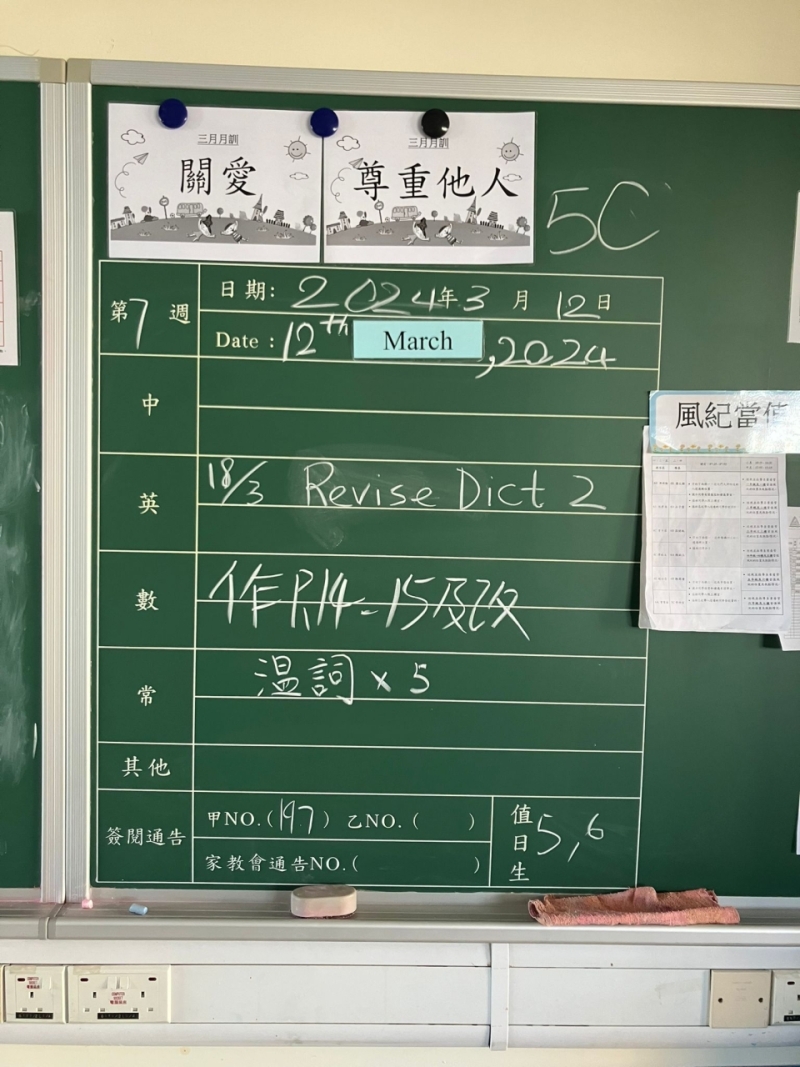 三月月訓
關愛
三月月訓
尊重他人
5C
第7週
日期: 2024年3月12日
Date : 12th March, 2024
中
英
18/3 Revise Dict 2
數
作P.14-15及改
常
温詞×5
其他
簽閱通告
甲NO.(197) 乙NO.( )
家教會通告NO.( )
值日生
5,6
風紀當值